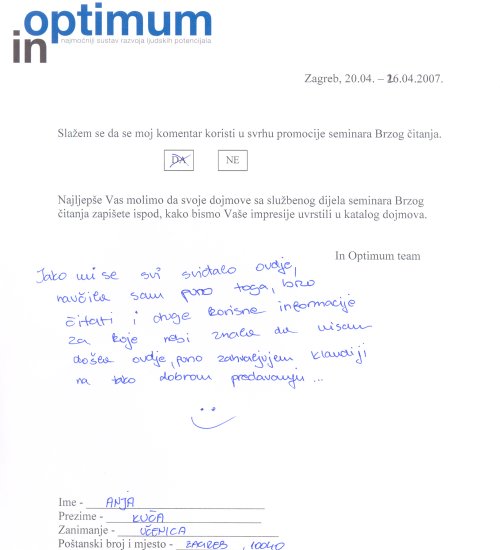 optimum
in najmoćniji sustav razvoja ljudskih potencijala
Zagreb, 20.04. – 26.04.2007.
Slažem se da se moj komentar koristi u svrhu promocije seminara Brzog čitanja.
DA NE
Najljepše Vas molimo da svoje dojmove sa službenog dijela seminara Brzog
čitanja zapišete ispod, kako bismo Vaše impresije uvrstili u katalog dojmova.
In Optimum team
Jako mi se svi sviđalo ovdje,
naučila sam puno toga, brzo
čitati i druge korisne informacije
za koje nebi znala da nisam
došla ovdje, puno zahvaljujem Klaudiji
na tako dobrom predavanju ...
Ime - ANJA
Prezime - KUČA
Zanimanje - UČENICA
Poštanski broj i mjesto - ZAGREB, 10040